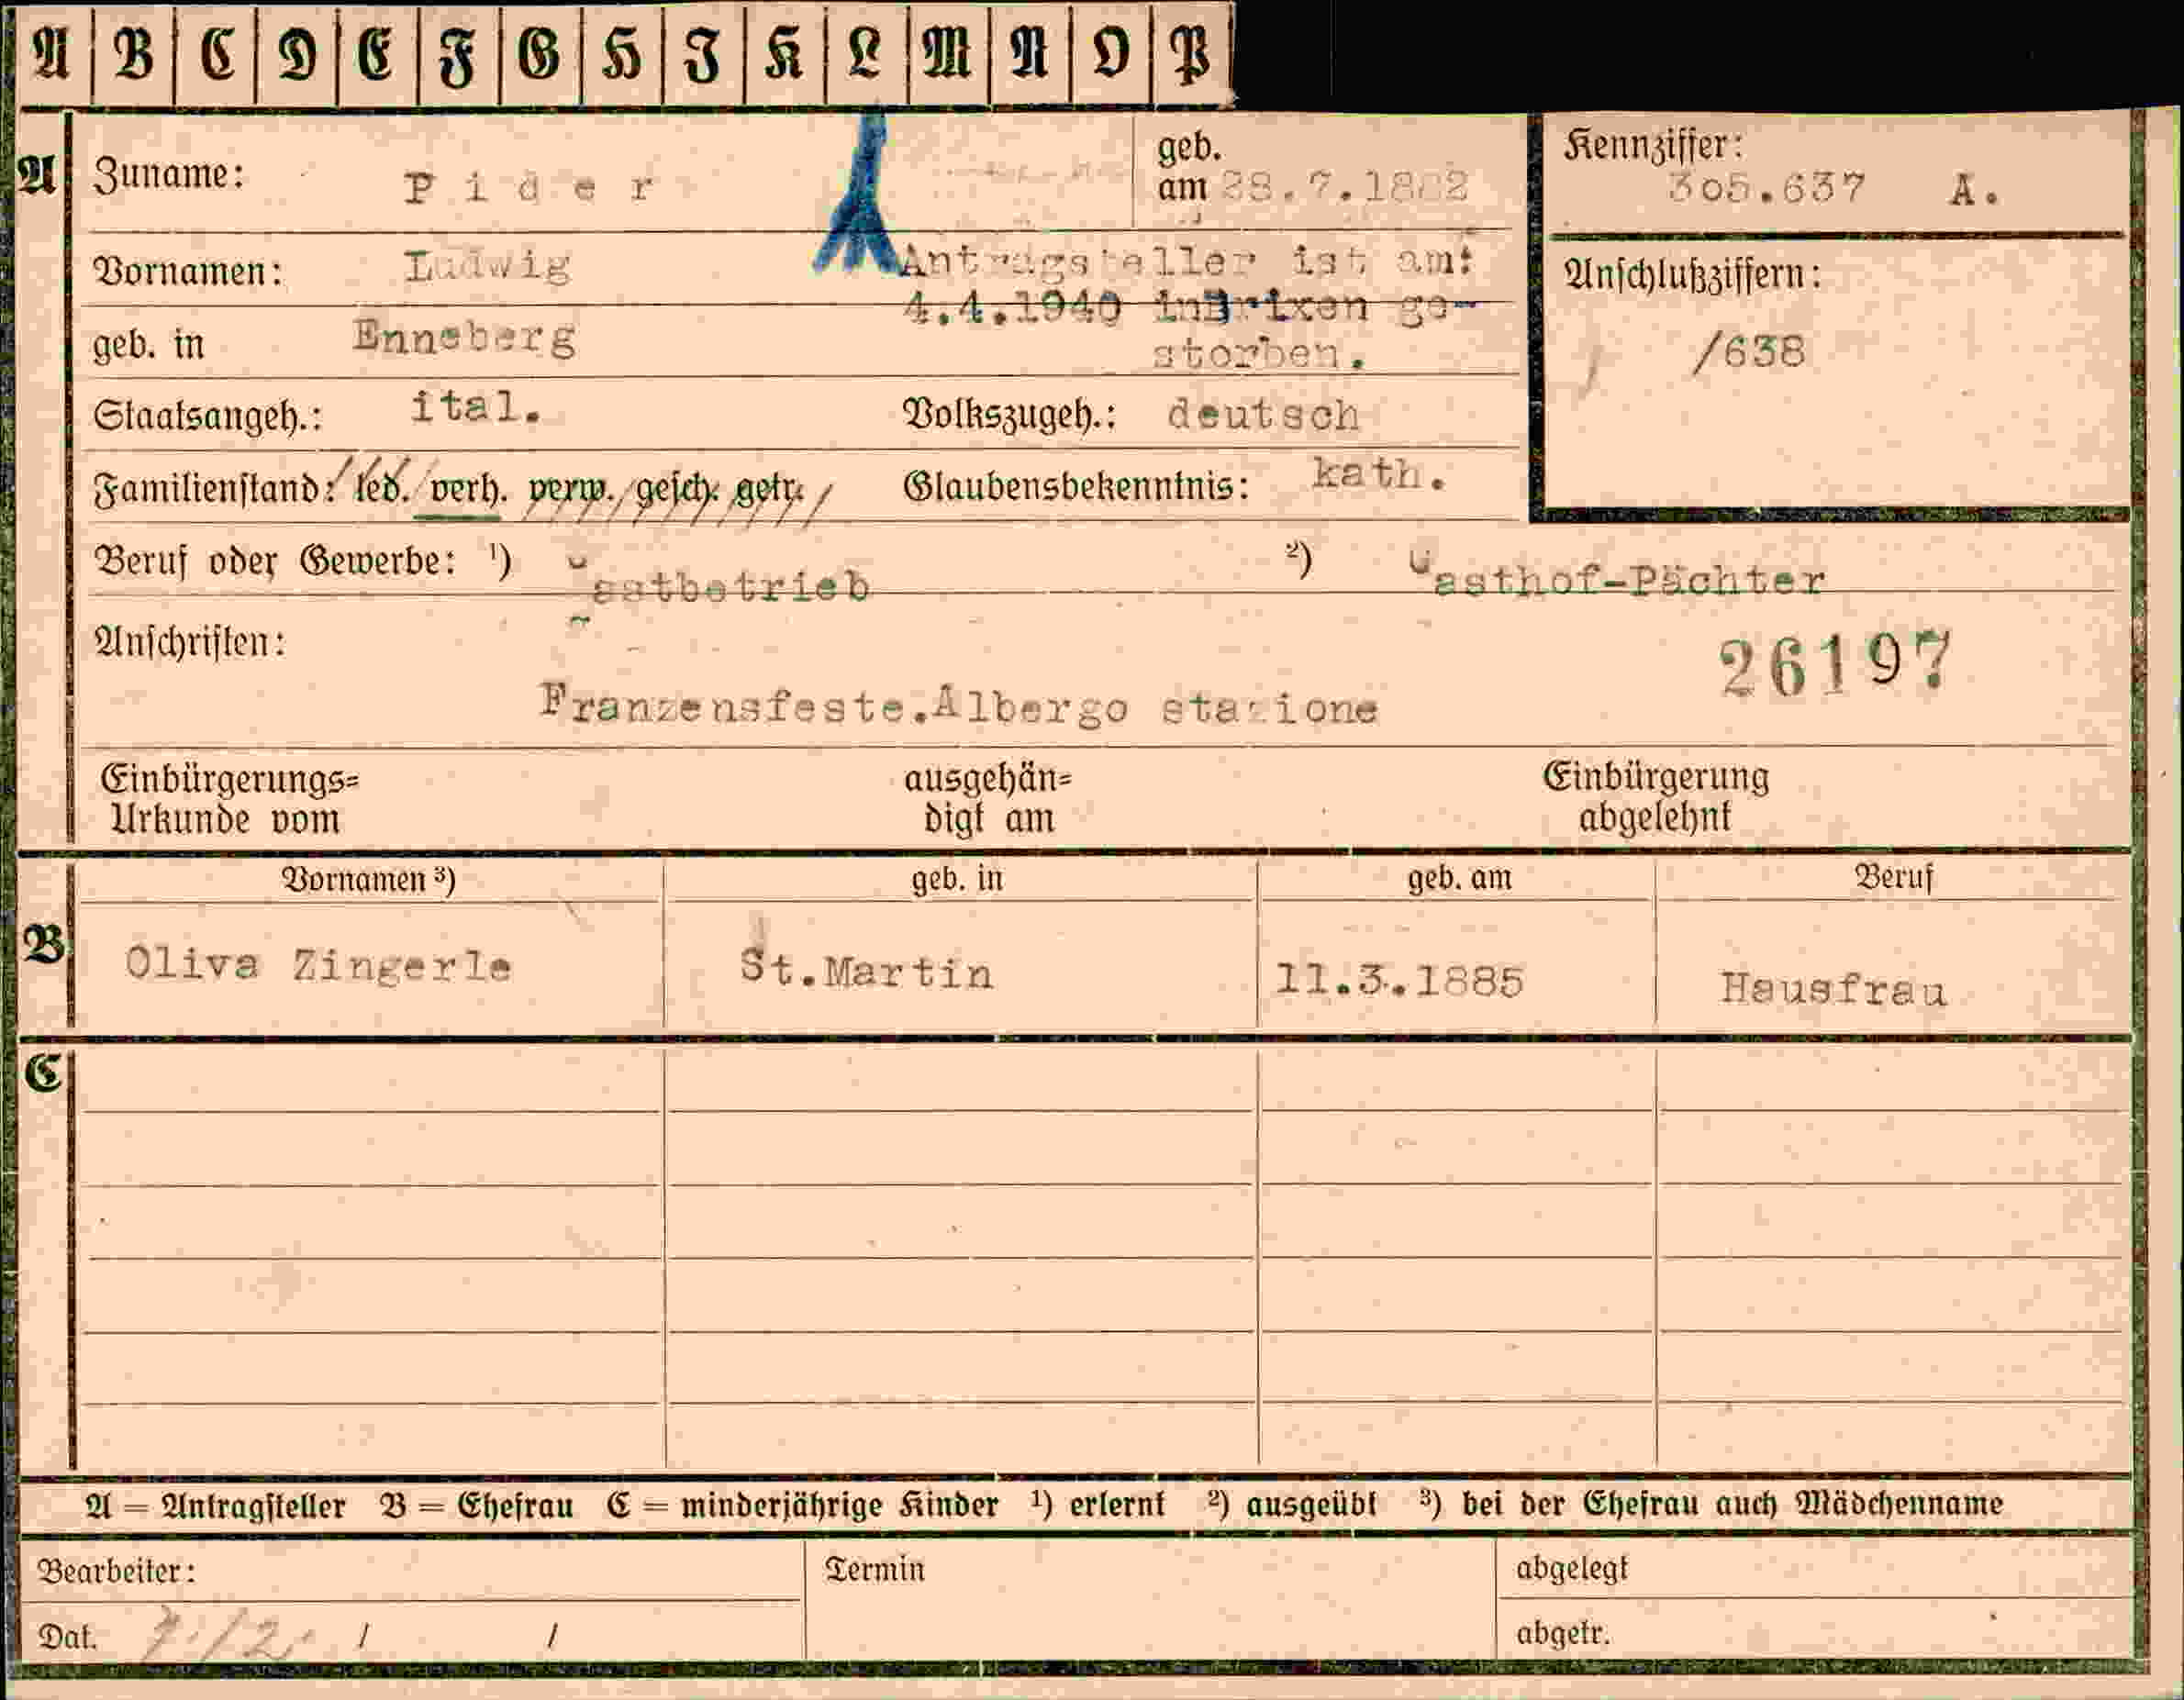 A B C D E F G H I K L M N O P
A
Zuname: Pider
geb.
am 28.7.1882
Kennziffer:
305.637 A.
Vornamen: Ludwig
Antragsteller ist am:
4.4.1940 inBrixen ge-
storben.
Anschlußziffern:
/638
geb. in Enneberg
Staatsangeh.: ital.
Volkszugeh.: deutsch
Familienstand: led. verh. verw. gesch. getr.
Glaubensbekenntnis: kath.
Beruf oder Gewerbe: ¹) Gastbetrieb ²) Gasthof-Pächter
Anschriften:
26197
Franzensfeste.Albergo stazione
Einbürgerungs=
Urkunde vom
ausgehän=
digt am
Einbürgerung
abgelehnt
B
Vornamen ³) geb. in geb. am Beruf
Oliva Zingerle St.Martin 11.3.1885 Hausfrau
C
A = Antragsteller B = Ehefrau C = minderjährige Kinder ¹) erlernt ²) ausgeübt ³) bei der Ehefrau auch Mädchenname
Bearbeiter:
Termin
abgelegt
Dat. / /
abgetr.